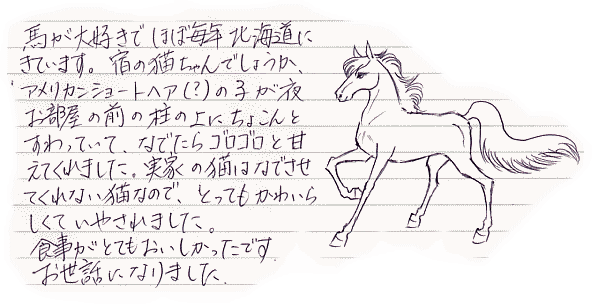 馬が大好きでほぼ毎年北海道に
きています。宿の猫ちゃんでしょうか、
アメリカンショートヘア(?)の子が夜
お部屋の前の柱の上にちょこんと
すわっていて、なでたらゴロゴロと甘
えてくれました。実家の猫はなでさせ
てくれない猫なので、とってもかわいら
しくていやされました。
食事がとてもおいしかったです
お世話になりました